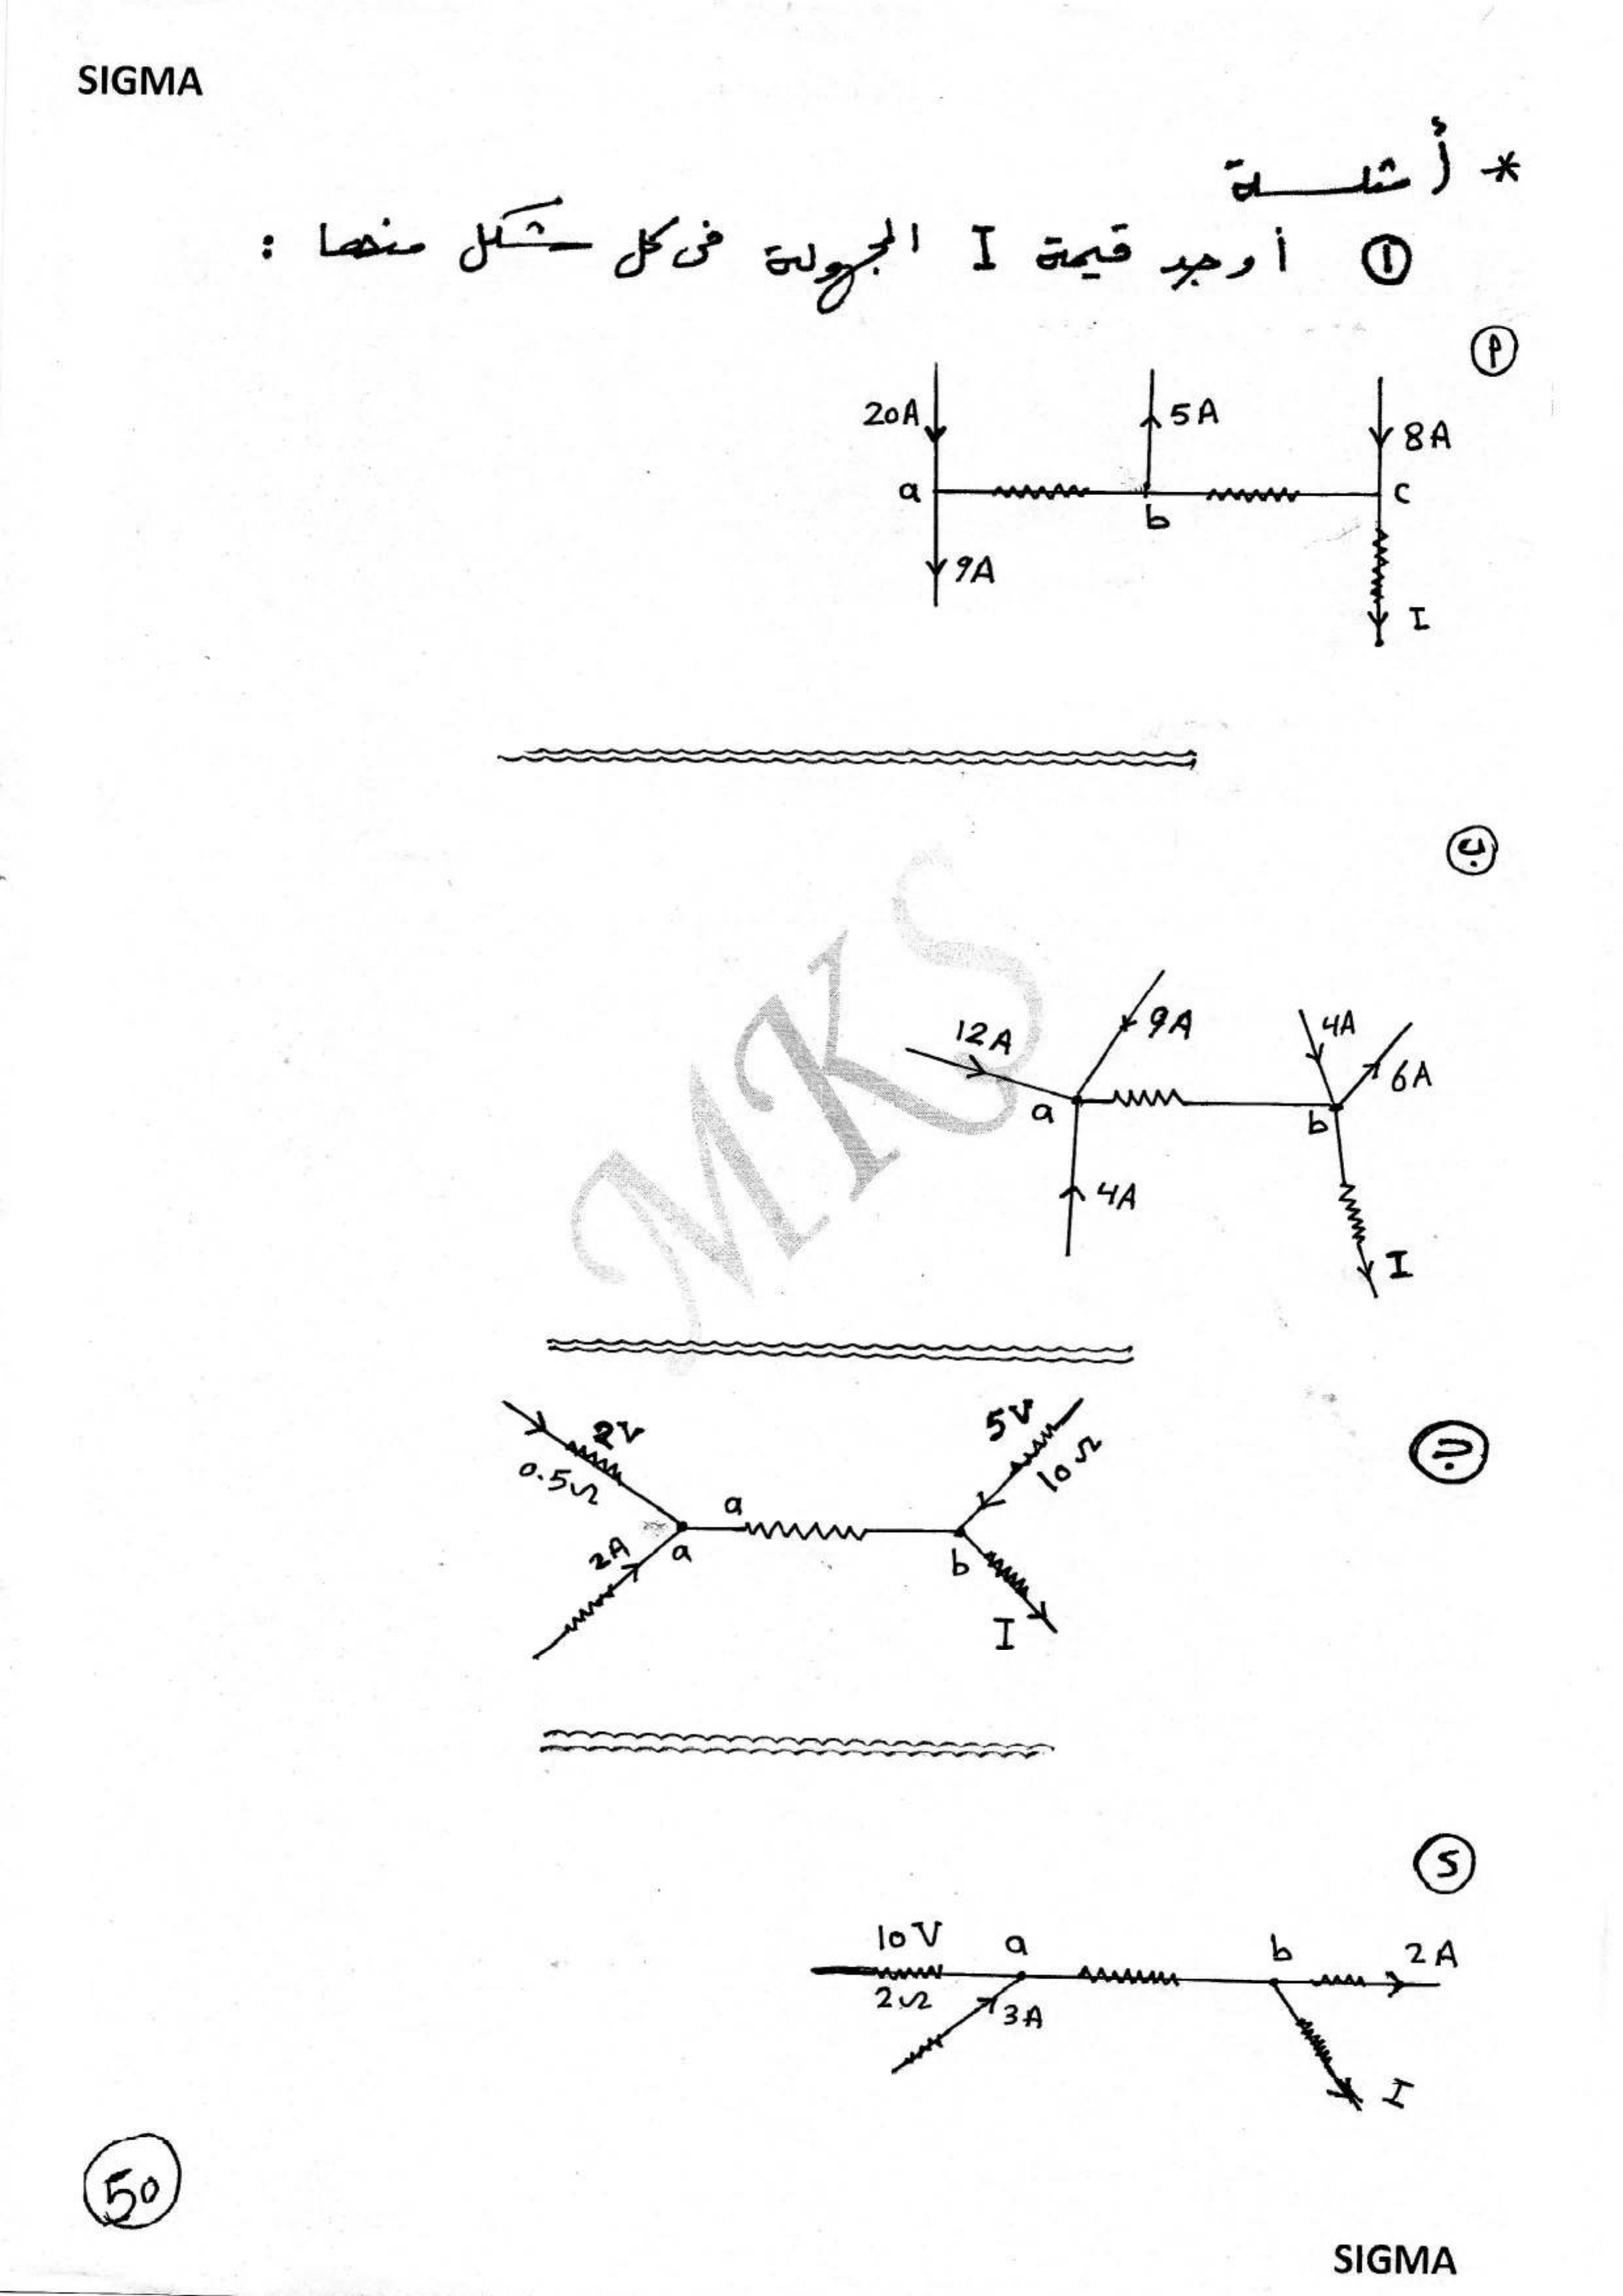 SIGMA
* أمثلة
① أوجد قيمة I المجهولة فى كل شكل منهما :
أ
20A
5A
8A
a
b
c
9A
I
ب
12A
9A
4A
6A
a
b
4A
I
MKS
ج
2V
0.5Ω
5V
10Ω
a
a
b
2A
I
د
10V
a
b
2A
2Ω
3A
I
50
SIGMA